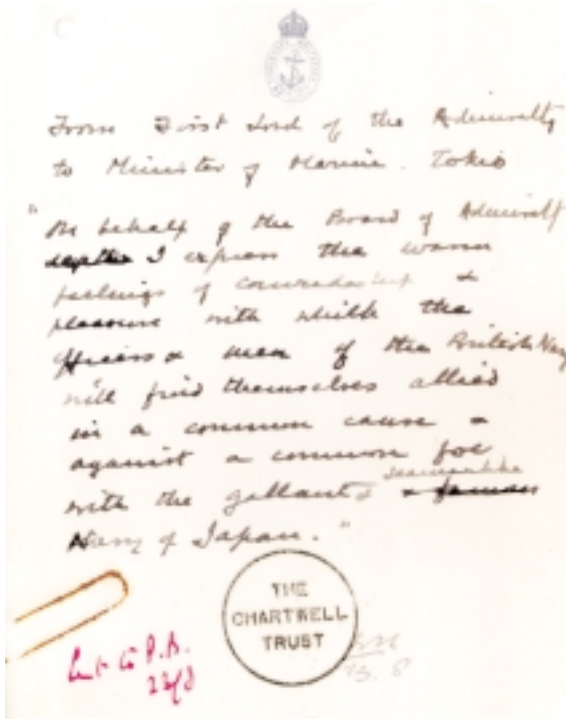 From First Lord of the Admiralty
to Minister of Marine. Tokio
"On behalf of the Board of Admiralty
I express the warm
feelings of comradeship &
pleasure with which the
officers & men of the British Navy
will find themselves allied
in a common cause &
against a common foe
with the gallant & seamanlike
Navy of Japan."
THE
CHARTWELL
TRUST
15.8
22/8